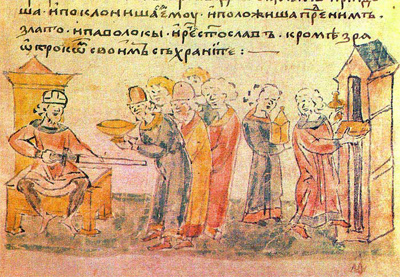 ша · ипоклонишаемоу · иположиша пре нимъ ·
злато · ипаволокы · ире стославъ · кромѣ зря
своимъ съхраните : —